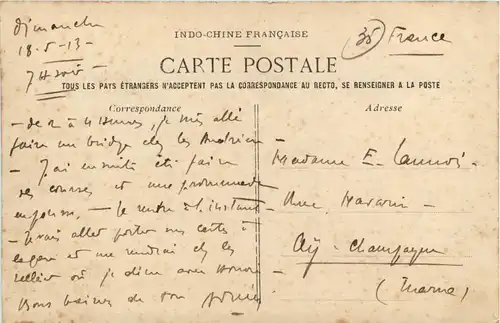 Dimanche
18-5-13-
7h soir
INDO-CHINE FRANÇAISE
35 France
CARTE POSTALE
TOUS LES PAYS ÉTRANGERS N'ACCEPTENT PAS LA CORRESPONDANCE AU RECTO, SE RENSEIGNER A LA POSTE
Correspondance
- de 2 à 4 heures, je suis allé
faire un bridge chez les
- J'ai ensuite été faire
des courses et une promenade
en pousse. - Je rentre à l'instant
- Je vais aller porter mes cartes à
la gare et me rendrai chez les
où je dîne avec
Bons baisers de ton
Adresse
Madame E.
Rue
Aÿ-Champagne
(Marne)